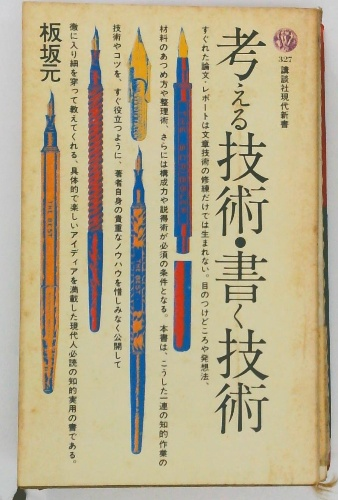 327
講談社現代新書
考える技術・書く技術
すぐれた論文・レポートは文章技術の修練だけでは生まれない。目のつけどころや発想法、
材料のあつめ方や整理術、さらには構成力や説得術が必須の条件となる。本書は、こうした一連の知的作業の
技術やコツを、すぐ役立つように、著者自身の貴重なノウハウを惜しみなく公開して
微に入り細を穿って教えてくれる。具体的で楽しいアイディアを満載した現代人必読の知的実用の書である。
板坂元